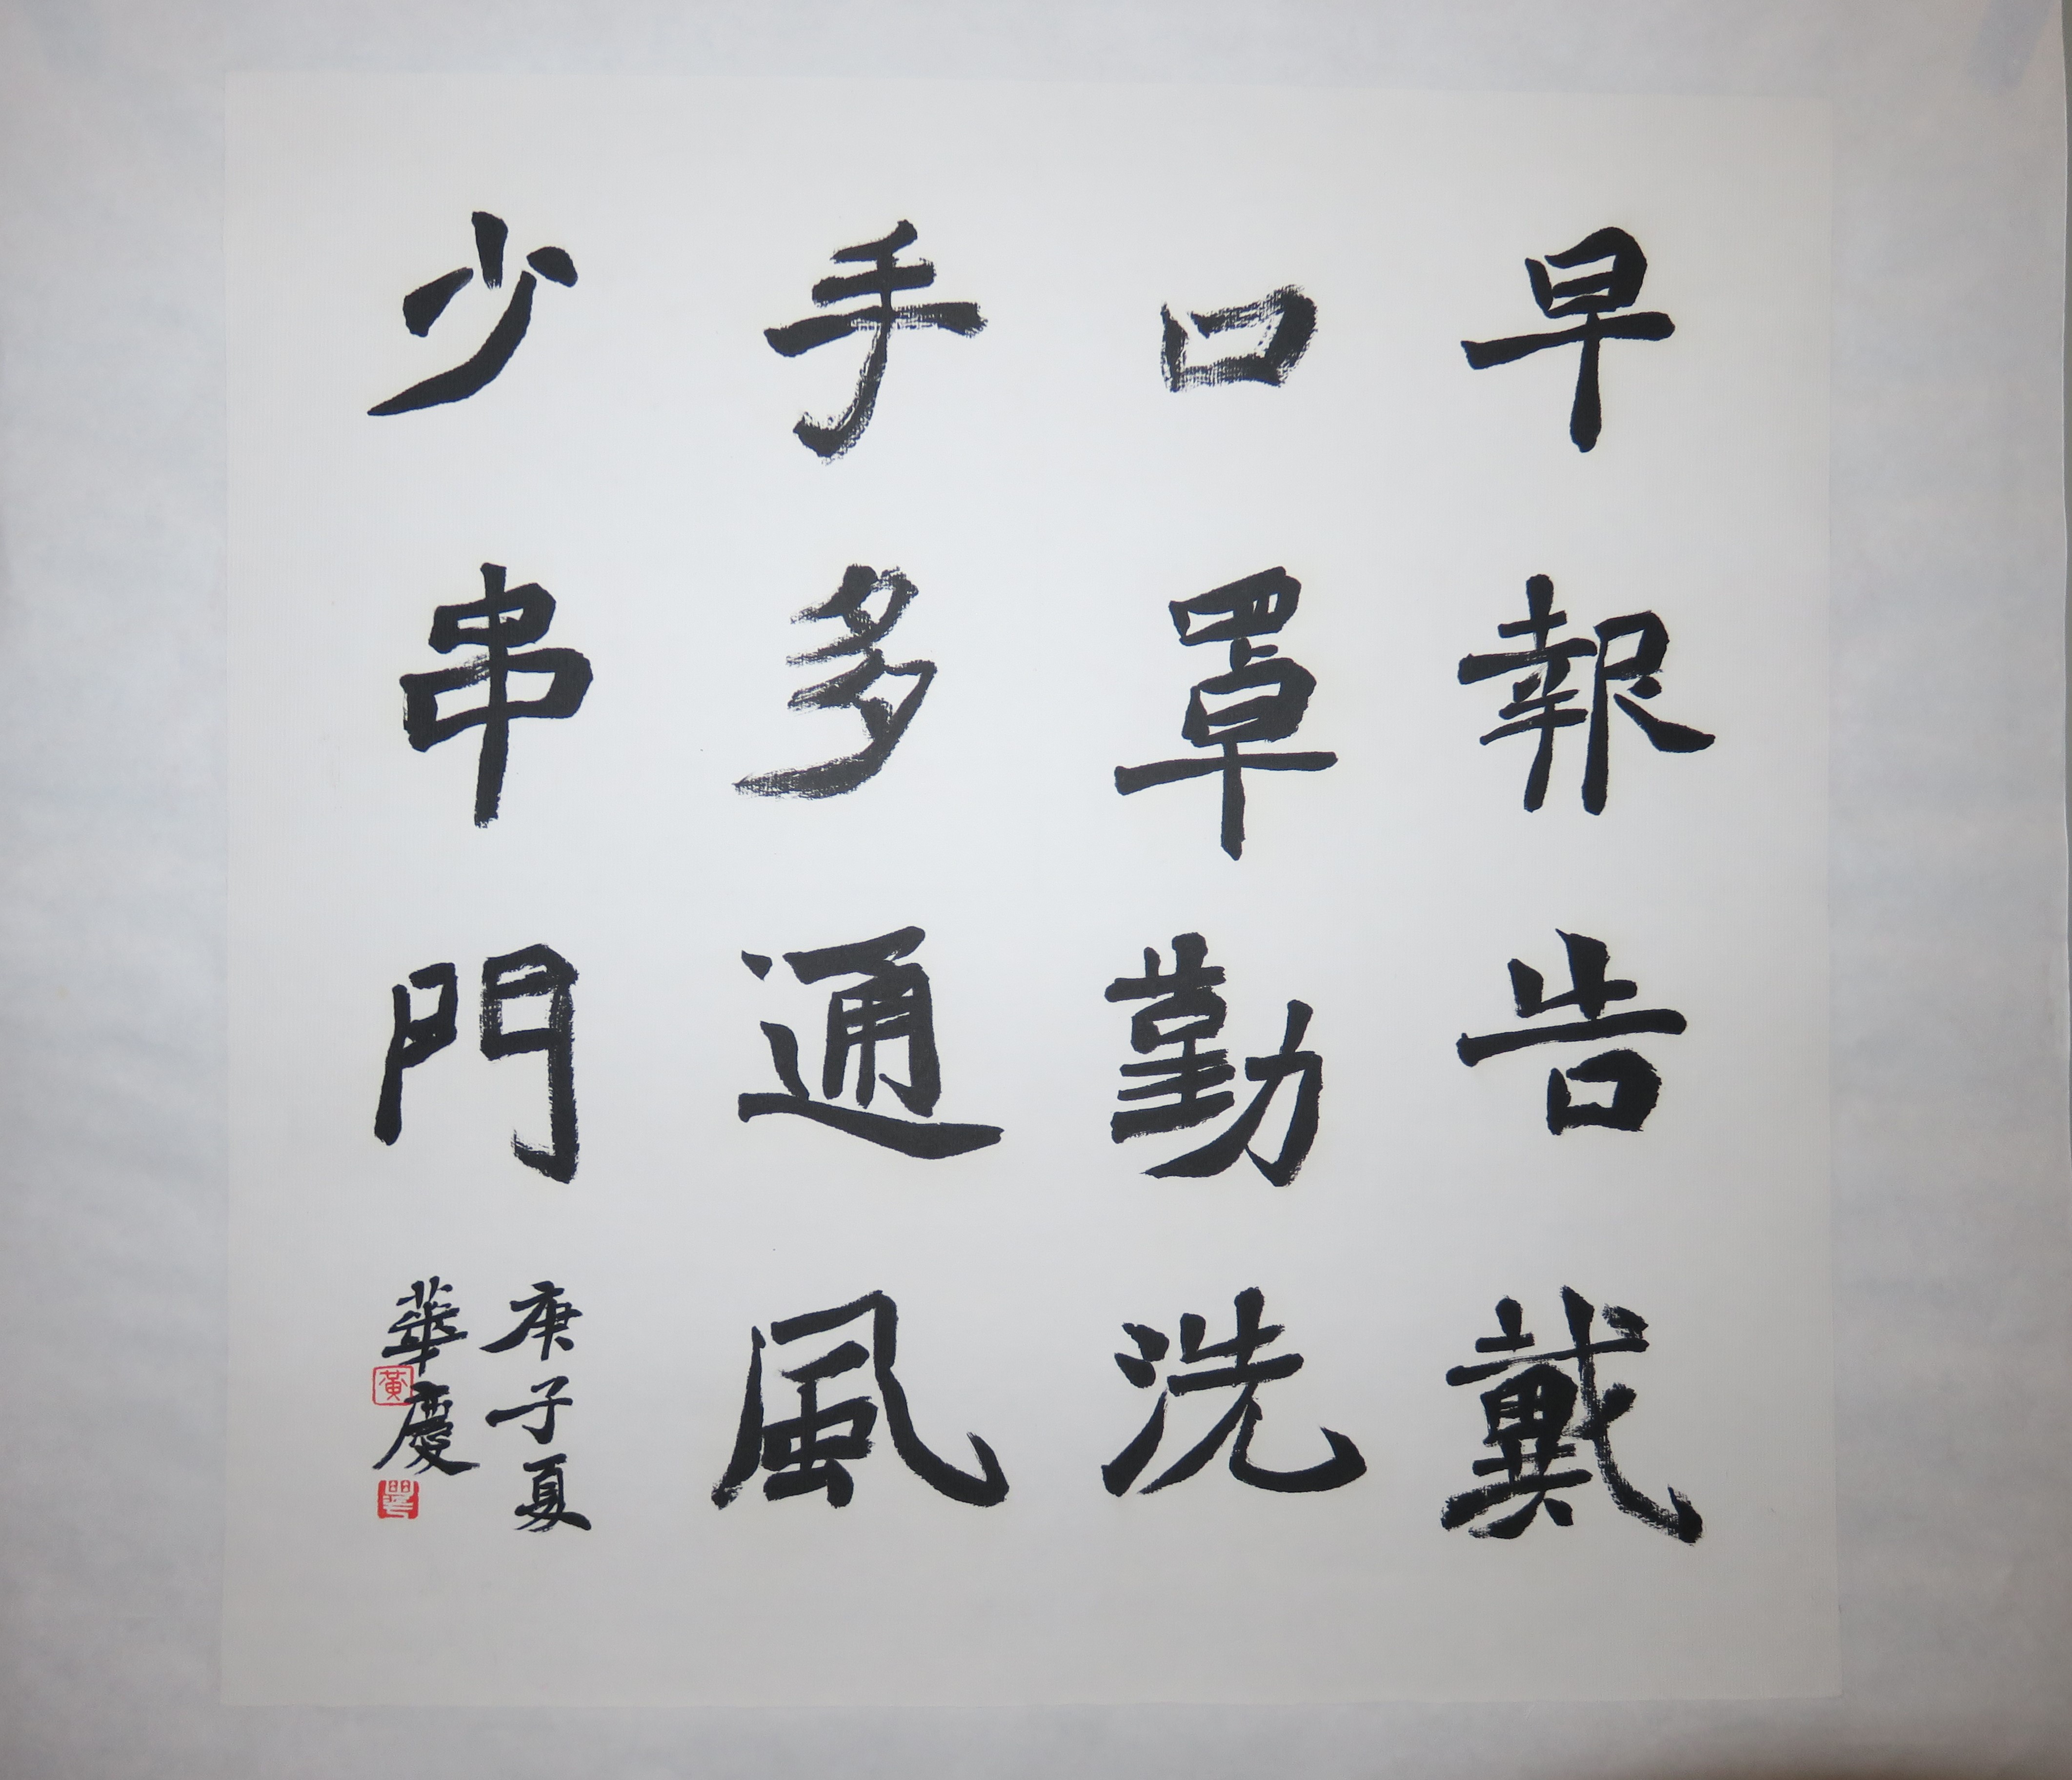 早報告戴
口罩勤洗
手多通風
少串門
庚子夏
華慶
黃